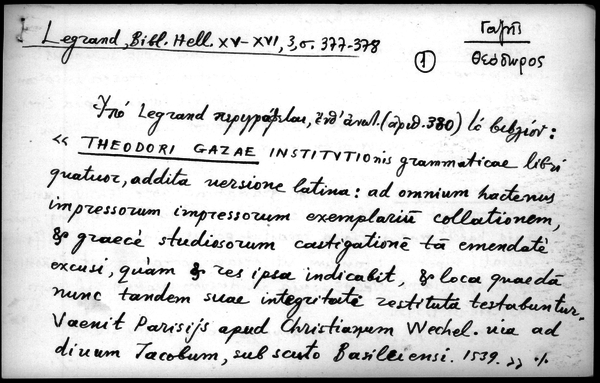 Legrand, Bibl. Hell. XV-XVI, 3, σ. 377-378
Γαζῆς
①
Θεόδωρος
Ὑπό Legrand περιγράφεται, (ἀριθ. 380) τό βιβλίον:
« THEODORI GAZAE INSTITVTIOnis grammaticae libri
quatuor, addita versione latina: ad omnium hactenus
impressorum impressorum exemplariū collationem,
& graecè studiosorum castigationē tā emendatè
excusi, quàm & res ipsa indicabit, & loca quaedā
nunc tandem suae integritati restituta testabuntur.
Vaenit Parisijs apud Christianum Wechel. via ad
diuum Iacobum, sub scuto Basileiensi. 1539. » ·/.